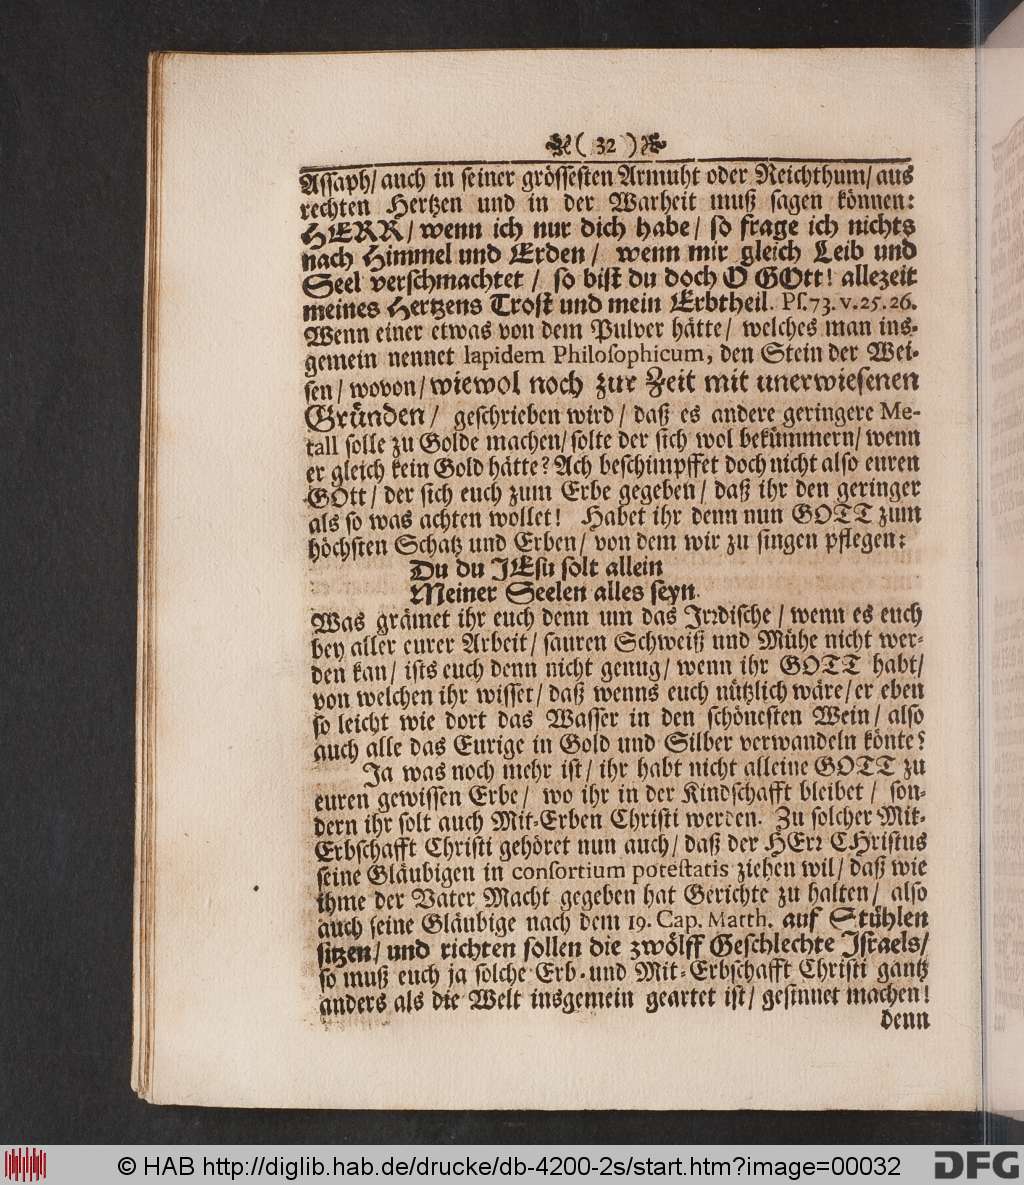 ( 32 )
Aſſaph/ auch in ſeiner gröſſeſten Armuht oder Reichthum/ aus
rechten Hertzen und in der Warheit muß ſagen können:
HERR/ wenn ich nur dich habe/ ſo frage ich nichts
nach Himmel und Erden/ wenn mir gleich Leib und
Seel verſchmachtet/ ſo biſt du doch O GOtt! allezeit
meines Hertzens Troſt und mein Erbtheil. Pſ. 73. v. 25. 26.
Wenn einer etwas von dem Pulver hätte/ welches man ins-
gemein nennet lapidem Philoſophicum, den Stein der Wei-
ſen/ wovon/ wiewol noch zur Zeit mit unerwieſenen
Gründen/ geſchrieben wird/ daß es andere geringere Me-
tall ſolle zu Golde machen/ ſolte der ſich wol bekümmern/ wenn
er gleich kein Gold hätte? Ach beſchimpffet doch nicht alſo euren
GOtt/ der ſich euch zum Erbe gegeben/ daß ihr den geringer
als ſo was achten wollet! Habet ihr denn nun GOTT zum
höchſten Schatz und Erben/ von dem wir zu ſingen pflegen:
Du du JEſu ſolt allein
Meiner Seelen alles ſeyn.
Was grämet ihr euch denn um das Irꝛdiſche/ wenn es euch
bey aller eurer Arbeit/ ſauren Schweiß und Mühe nicht wer-
den kan/ iſts euch denn nicht genug/ wenn ihr GOTT habt/
von welchen ihr wiſſet/ daß wenns euch nützlich wäre/ er eben
ſo leicht wie dort das Waſſer in den ſchöneſten Wein/ alſo
auch alle das Eurige in Gold und Silber verwandeln könte?
Ja was noch mehr iſt/ ihr habt nicht alleine GOTT zu
euren gewiſſen Erbe/ wo ihr in der Kindſchafft bleibet/ ſon-
dern ihr ſolt auch Mit-Erben Chriſti werden. Zu ſolcher Mit-
Erbſchafft Chriſti gehöret nun auch/ daß der HErꝛ CHriſtus
ſeine Gläubigen in conſortium poteſtatis ziehen wil/ daß wie
ihme der Vater Macht gegeben hat Gerichte zu halten/ alſo
auch ſeine Gläubige nach dem 19. Cap. Matth. auf Stühlen
ſitzen/ und richten ſollen die zwölff Geſchlechte Iſraels/
ſo muß euch ja ſolche Erb- und Mit-Erbſchafft Chriſti gantz
anders als die Welt insgemein geartet iſt/ geſinnet machen!
denn
© HAB http://diglib.hab.de/drucke/db-4200-2s/start.htm?image=00032
DFG